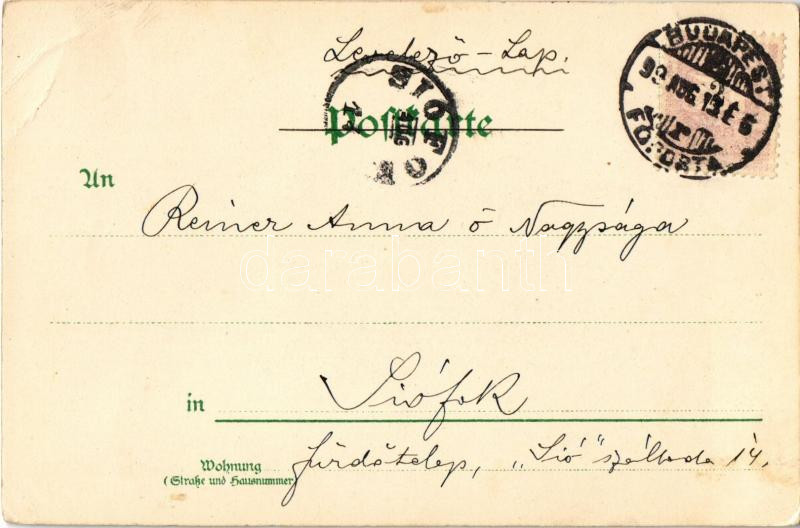 Levelező-Lap.
BUDAPEST
99 AUG. 13. É 6
FŐPOSTA
SIÓFOK
AUG
Postkarte
An
Reiner Anna ő Nagysága
darabanth
in Siófok
Wohnung
(Straße und Hausnummer)
fürdőtelep, „Sió" szálloda 14.